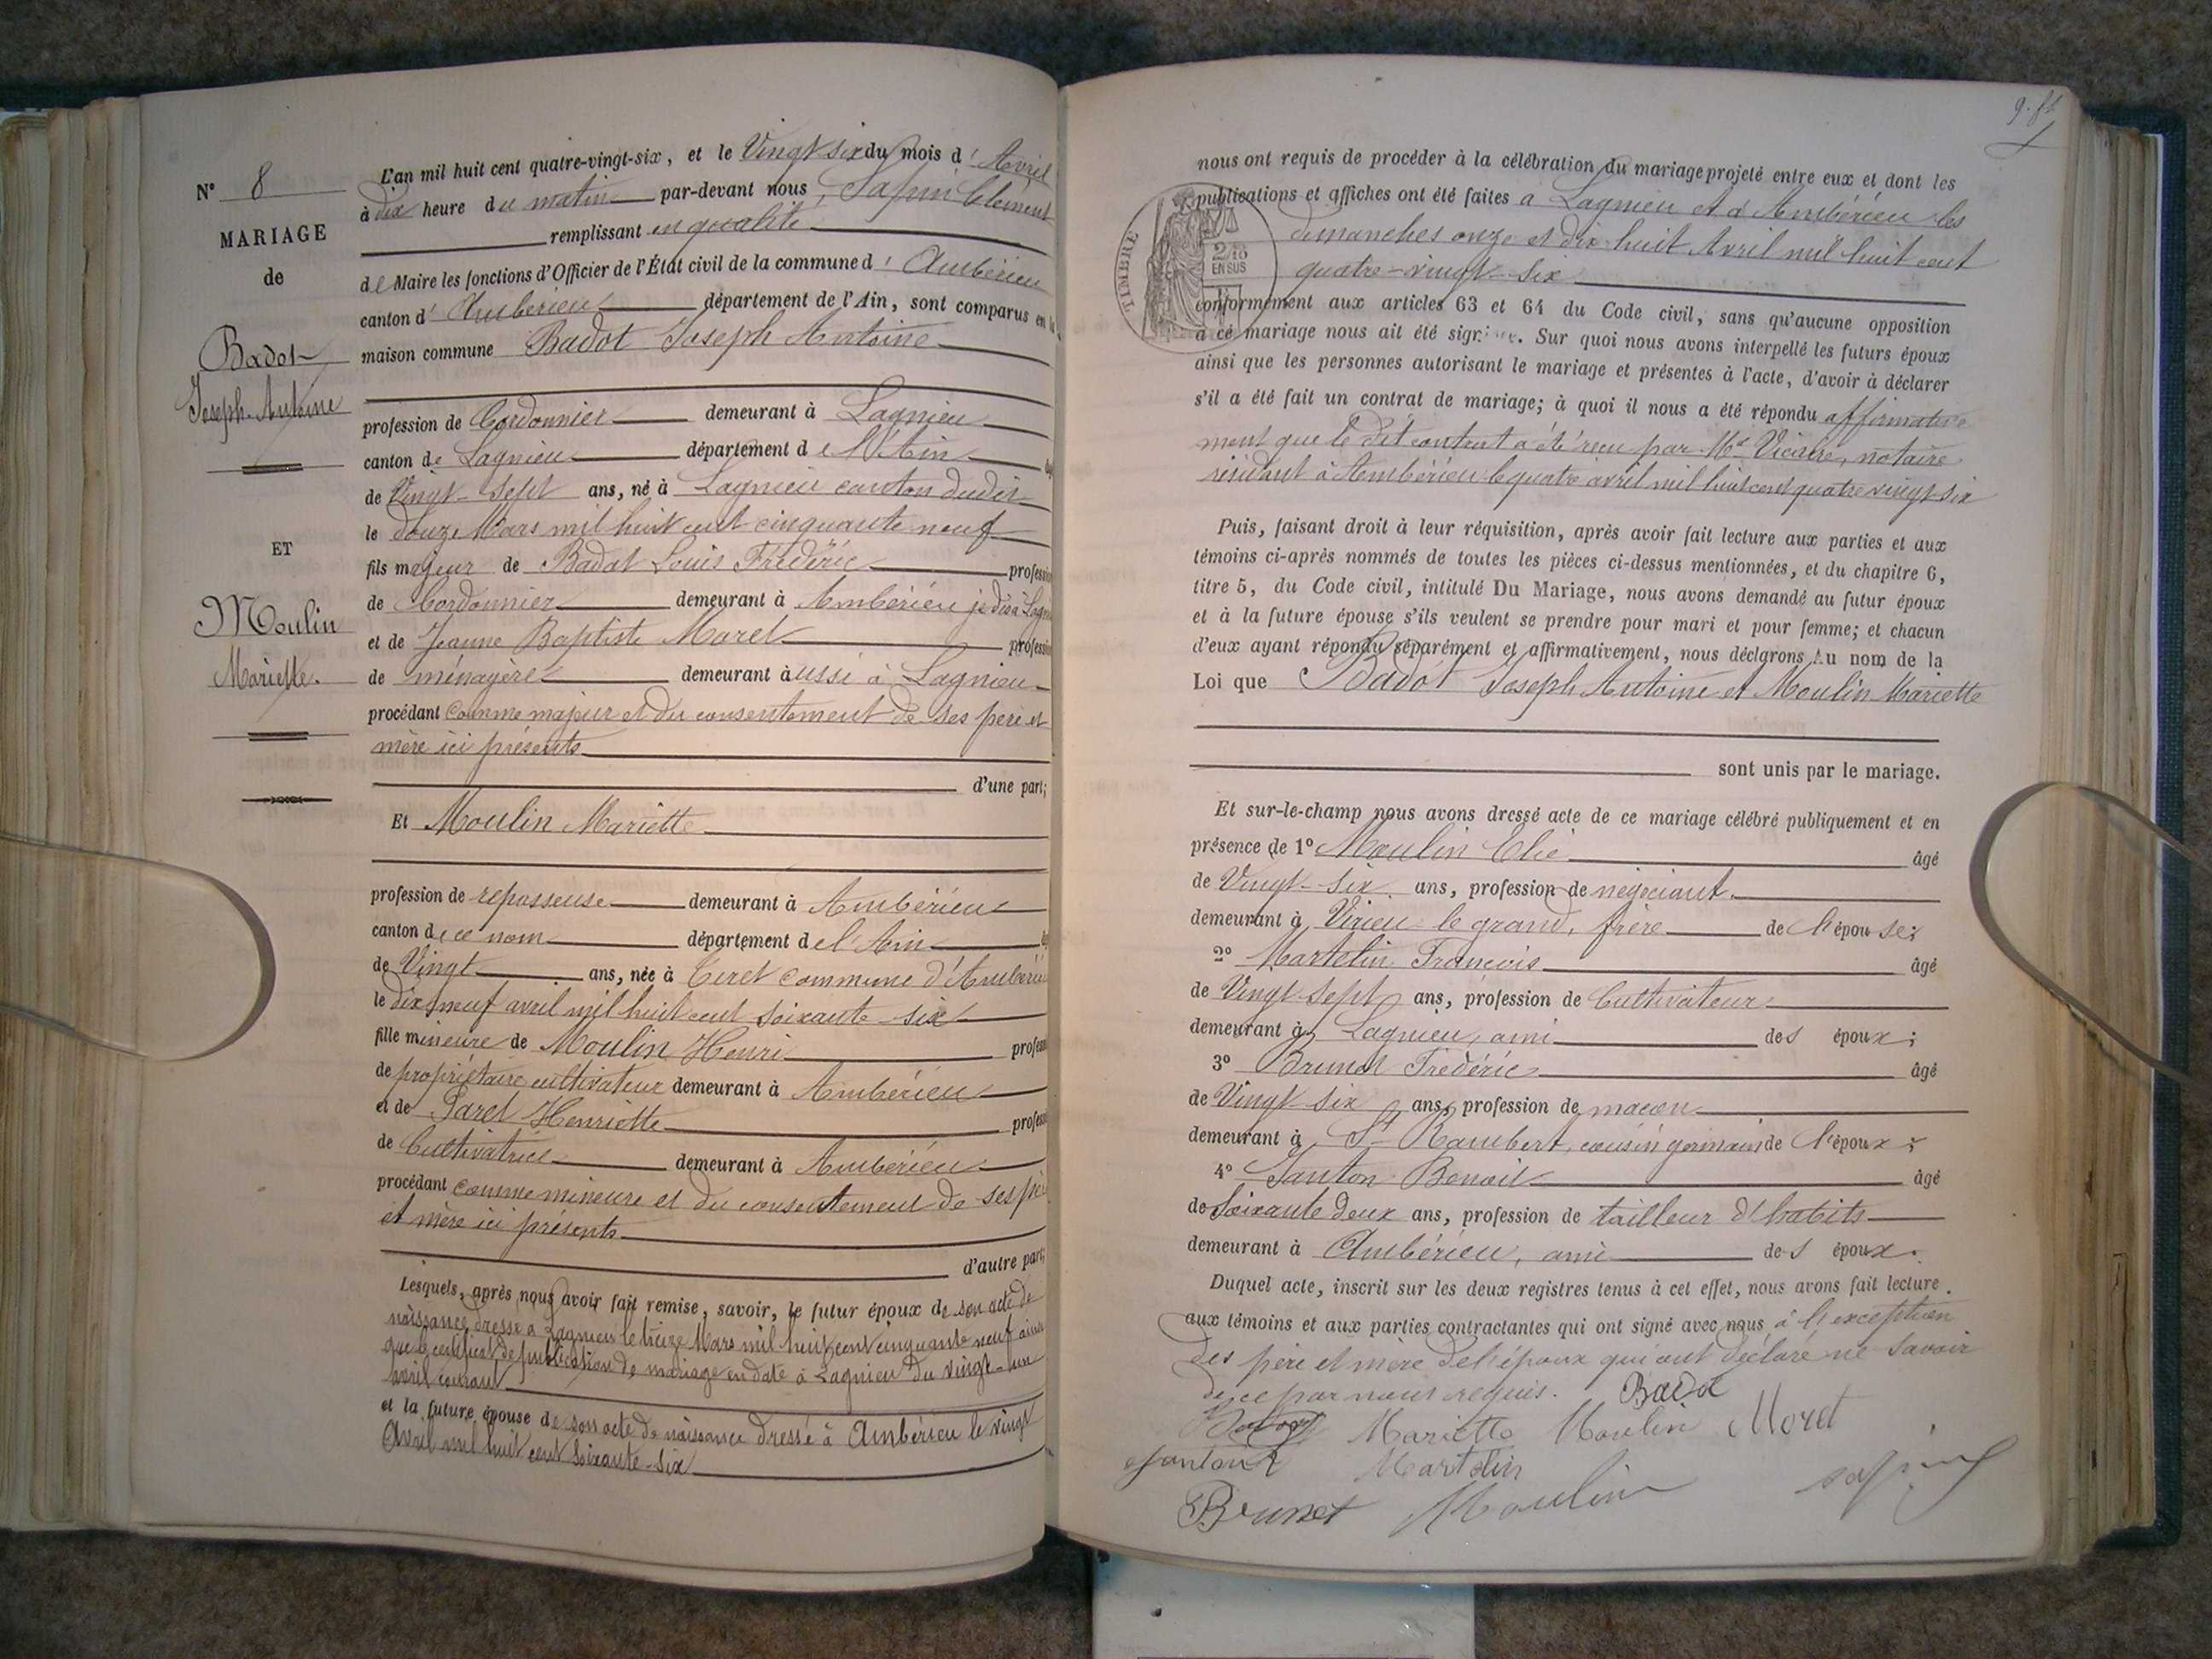 N° 8
MARIAGE
de
Badot
Joseph-Antoine
ET
Moulin
Mariette.
L'an mil huit cent quatre-vingt-six, et le Vingt six du mois d'Avril
à dix heure du matin par-devant nous, Sapin Clément
remplissant en qualité
de Maire les fonctions d'Officier de l'État civil de la commune d'Ambérieu
canton d'Ambérieu département de l'Ain, sont comparus en la
maison commune Badot Joseph Antoine
profession de Cordonnier demeurant à Lagnieu
canton de Lagnieu département de l'Ain
de Vingt-Sept ans, né à Lagnieu canton dudit
le douze Mars mil huit cent cinquante neuf
fils majeur de Badot Louis Frédéric profession
de Cordonnier demeurant à Ambérieu je dis à Lagnieu
et de Jeanne Baptiste Moret profession
de ménagère demeurant aussi à Lagnieu
procédant comme majeur et du consentement de ses père et
mère ici présents
d'une part;
Et Moulin Mariette
profession de repasseuse demeurant à Ambérieu
canton de ce nom département de l'Ain
de Vingt ans, née à Tiret commune d'Ambérieu
le dix neuf avril mil huit cent soixante-six
fille mineure de Moulin Henri profession
de propriétaire cultivateur demeurant à Ambérieu
et de Henriette profession
de Cultivatrice demeurant à Ambérieu
procédant comme mineure et du consentement de ses père
et mère ici présents
d'autre part;
Lesquels, après nous avoir fait remise, savoir, le futur époux de son acte de
naissance dressé à Lagnieu le treize Mars mil huit cent cinquante neuf ainsi
que le certificat de publication de mariage en date à Lagnieu du vingt-un
avril courant
et la future épouse de son acte de naissance dressé à Ambérieu le vingt
Avril mil huit cent soixante-six
nous ont requis de procéder à la célébration du mariage projeté entre eux et dont les
publications et affiches ont été faites à Lagnieu et à Ambérieu les
dimanches onze et dix-huit Avril mil huit cent
quatre-vingt-six
TIMBRE
EN SUS
conformément aux articles 63 et 64 du Code civil, sans qu'aucune opposition
à ce mariage nous ait été signifiée. Sur quoi nous avons interpellé les futurs époux
ainsi que les personnes autorisant le mariage et présentes à l'acte, d'avoir à déclarer
s'il a été fait un contrat de mariage; à quoi il nous a été répondu affirmative
ment que le dit contrat a été reçu par Me Vicaire, notaire
résidant à Ambérieu le quatre avril mil huit cent quatre vingt-six
Puis, faisant droit à leur réquisition, après avoir fait lecture aux parties et aux
témoins ci-après nommés de toutes les pièces ci-dessus mentionnées, et du chapitre 6,
titre 5, du Code civil, intitulé Du Mariage, nous avons demandé au futur époux
et à la future épouse s'ils veulent se prendre pour mari et pour femme; et chacun
d'eux ayant répondu séparément et affirmativement, nous déclarons Au nom de la
Loi que Badot Joseph Antoine et Moulin Mariette
sont unis par le mariage.
Et sur-le-champ nous avons dressé acte de ce mariage célébré publiquement et en
présence de 1° Moulin Elie âgé
de Vingt-six ans, profession de négociant
demeurant à Virieu-le-grand, frère de l'épouse;
2° Martelin François âgé
de Vingt-sept ans, profession de Cultivateur
demeurant à Lagnieu, ami des époux;
3° Brunet Frédéric âgé
de Vingt-six ans, profession de maçon
demeurant à St Rambert, cousin germain de l'époux;
4° Janton Benoit âgé
de Soixante deux ans, profession de tailleur d'habits
demeurant à Ambérieu, ami des époux.
Duquel acte, inscrit sur les deux registres tenus à cet effet, nous avons fait lecture
aux témoins et aux parties contractantes qui ont signé avec nous à l'exception
des père et mère de l'époux qui ont déclaré ne savoir
de ce par nous requis. Badot
Mariette Moulin Moret
Janton Martelin
Brunet Moulin Sapin